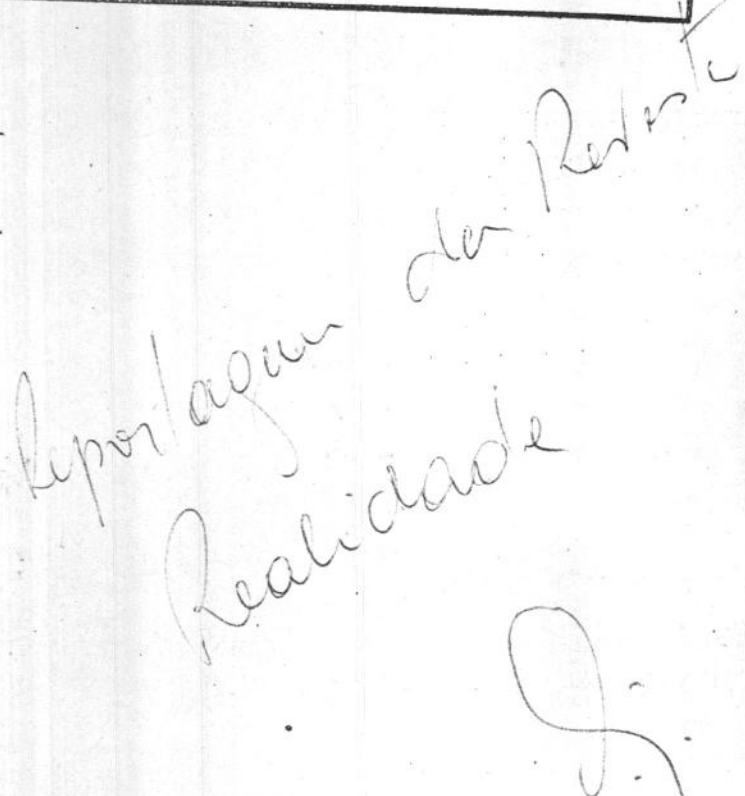 Reportagem da Revista
Realidade